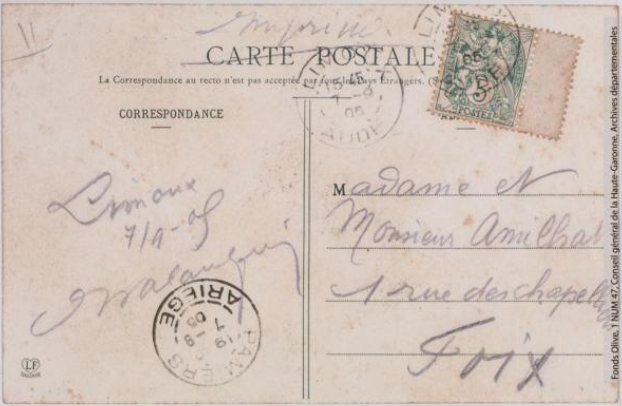 11
Imprimé
CARTE POSTALE
La Correspondance au recto n'est pas acceptée par tous les Pays Etrangers. (S
CORRESPONDANCE
LIMOUX
15 45
7 - 9
05
AUDE
LIMOUX
05
AUDE
5
POSTES
Limoux
7/9-05
Madame et
Monsieur Amilhat
1 rue des chapelles
Foix
PAMIERS
19
7 - 9
05
ARIEGE
LF
Fonds Olive, 1 NUM 47, Conseil général de la Haute-Garonne, Archives départementales